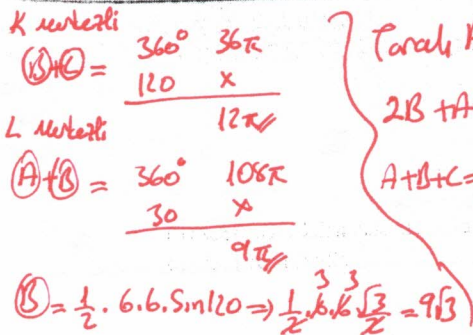 K merkezli
(B)+(C) = 360° 36π
120 x
12π
L merkezli
(A)+(B) = 360° 108π
30 x
9π
(B) = 1/2 . 6.6. Sin120 => 1/2 . 6 3 . 6 3 √3/2 = 9√3
Taralı
2B + A
A+B+C=